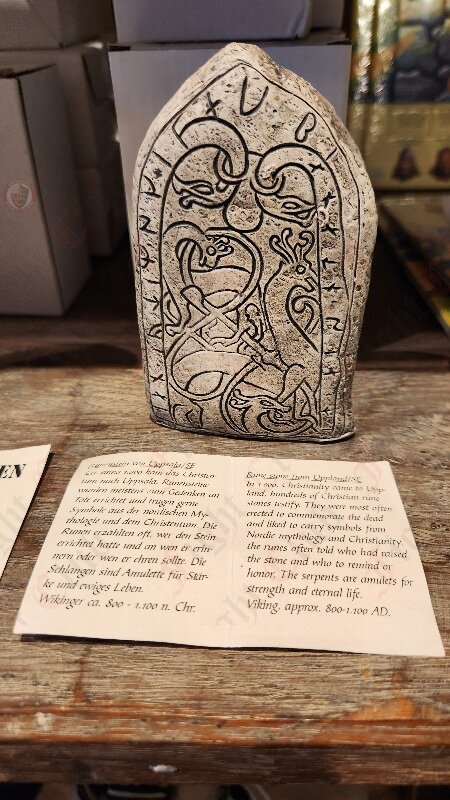 EN
Runenstein von Uppsala/SE
Ca. anno 1.000 kam das Christen-
tum nach Uppsala. Runensteine
wurden meistens zum Gedenken an
Tote errichtet und trugen gerne
Symbole aus der nordischen My-
thologie und dem Christentum. Die
Runen erzählten oft, wer den Stein
errichtet hatte und an wen er erin-
nern oder wen er ehren sollte. Die
Schlangen sind Amulette für Stär-
ke und ewiges Leben.
Wikinger ca. 800 - 1.100 n. Chr.
Rune stone from Uppland/SE
In 1.000, Christianity came to Upp-
land, hundreds of Christian rune
stones testify. They were most often
erected to commemorate the dead
and liked to carry symbols from
Nordic mythology and Christianity.
the runes often told who had raised
the stone and who to remind or
honor. The serpents are amulets for
strength and eternal life.
Viking, approx. 800-1.100 AD.